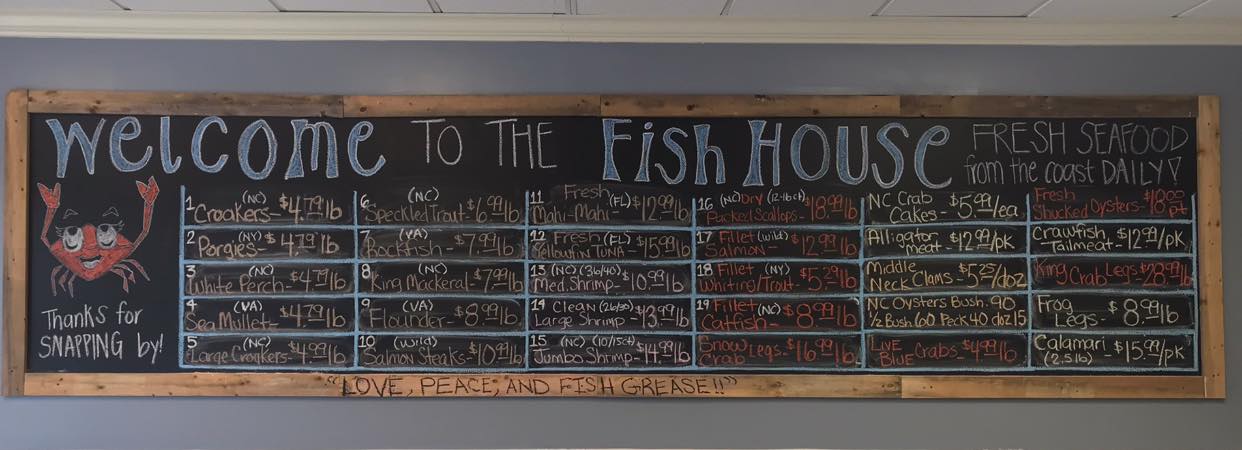 Welcome TO THE Fish HOUSE
FRESH SEAFOOD
from the coast DAILY!
Thanks for
SNAPPING by!
1 (NC)
Croakers - $4.79 lb
2 (NY)
Porgies - $4.79 lb
3 (NC)
White Perch - $4.79 lb
4 (VA)
Sea Mullet - $4.79 lb
5 (NC)
Large Croakers - $4.99 lb
6 (NC)
Speckled Trout - $6.99 lb
7 (VA)
Rockfish - $7.99 lb
8 (NC)
King Mackeral - $7.99 lb
9 (VA)
Flounder - $8.99 lb
10 (Wild)
Salmon Steaks - $10.99 lb
11 Fresh (FL)
Mahi-Mahi - $12.99 lb
12 Fresh (FL)
Yellowfin TUNA - $15.99 lb
13 (NC) (36/40)
Med. Shrimp - $10.99 lb
14 Clean (26/30)
Large Shrimp - $13.99 lb
15 (NC) (10/15ct)
Jumbo Shrimp - $14.99 lb
16 (NC) Dry
Packed Scallops - $18.99 lb
17 Fillet (Wild)
Salmon - $12.99 lb
18 Fillet (NY)
Whiting/Trout - $5.29 lb
19 Fillet (NC)
Catfish - $8.99 lb
Snow Legs - $16.99 lb
Crab
NC Crab
Cakes - $5.99/ea
Alligator
meat - $12.99/pk
Middle
Neck Clams - $5.25/doz
NC Oysters Bush. 90
1/2 Bush 60 Peck 40 doz 15
LIVE
BLUE Crabs - $4.99 lb
Fresh
Shucked Oysters $18.00 pt
Crawfish
Tailmeat - $12.99/pk
King Crab Legs $28.99 lb
Frog
Legs - $8.99 lb
Calamari
(2.5 lb) - $15.99/pk
"LOVE, PEACE, AND FISH GREASE!!"